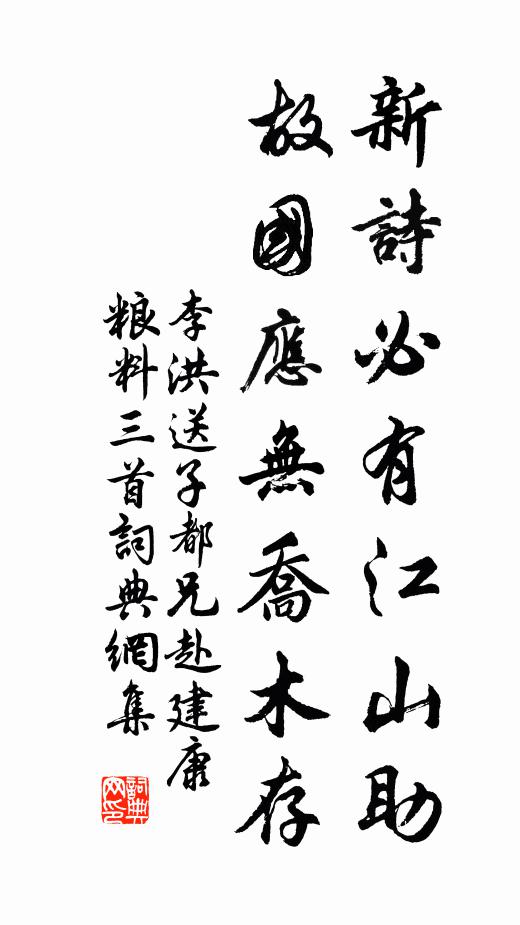 新詩必有江山助
故國應無喬木存
李洪送子都兄赴建康
粮料三首詞典網集
詞典
网印